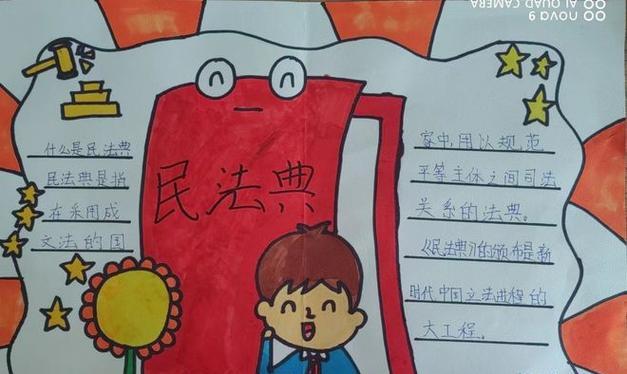 nova 9
AI QUAD CAMERA
民法典
什么是民法典
民法典是指
在采用成
文法的国
家中,用以规范
平等主体之间司法
关系的法典。
《民法典》的颁布是新
时代中国立法进程的
大工程。